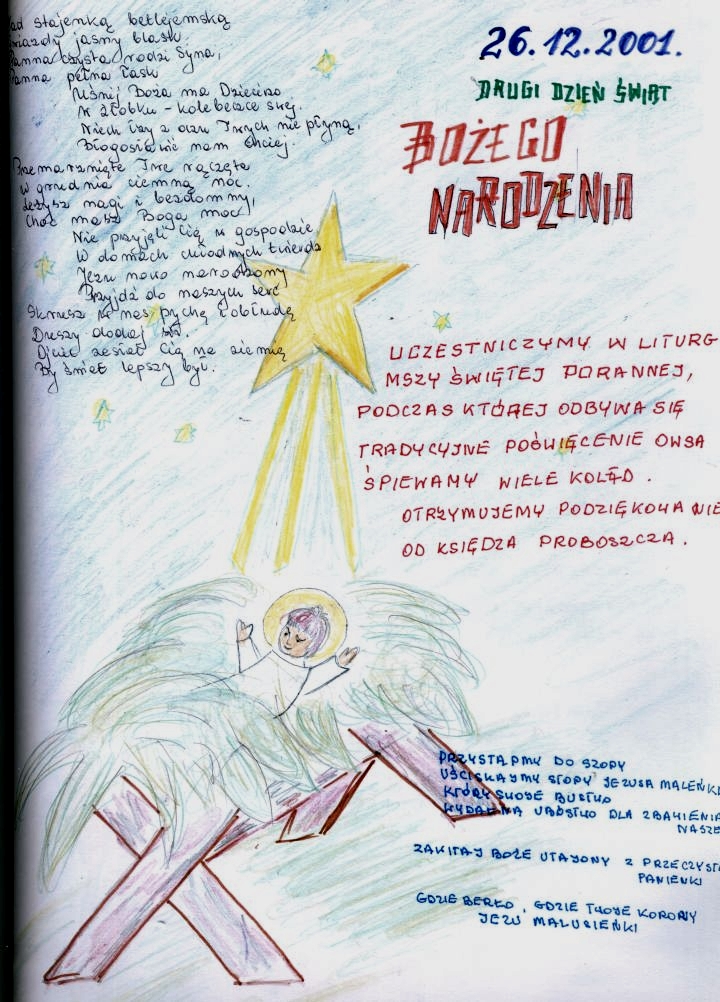 ad stajenką betlejemską
wiazdy jasny blask.
anna czysta rodzi Syna,
anna pełna łask
Uśnij Boże ma Dziecino
W żłobku - kolebeczce swej.
Niech łzy z oczu Twych nie płyną,
Błogosławić nam chciej.
Przemarznięte Twe rączęta
W grudnia ciemną noc.
Leżysz nagi i bezdomny,
Choć masz Boga moc
Nie przyjęli Cię w gospodzie
W domach chłodnych twierdz
Jezu nowo narodzony
Przyjdź do naszych serc
Skrusz w nas pychę i obłudę
Duszy dodaj sił.
Ojciec zesłał Cię na ziemię
By świat lepszy był.
26.12.2001.
DRUGI DZIEŃ ŚWIĄT
BOŻEGO
NARODZENIA
UCZESTNICZYMY W LITURG
MSZY ŚWIĘTEJ PORANNEJ,
PODCZAS KTÓREJ ODBYWA SIĘ
TRADYCYJNE POŚWIĘCENIE OWSA
ŚPIEWAMY WIELE KOLĘD.
OTRZYMUJEMY PODZIĘKOWANIE
OD KSIĘDZA PROBOSZCZA.
PRZYSTĄPMY DO SZOPY
UŚCISKAJMY STOPY JEZUSA MALEŃK
KTÓRY SWOJE BÓSTWO
WYDAŁ NA UBÓSTWO DLA ZBAWIENIA
NASZE
ZAWITAJ BOŻE UTAJONY Z PRZECZYST
PANIENKI
GDZIE BERŁO, GDZIE TWOJE KORONY
JEZU MALUSIEŃKI